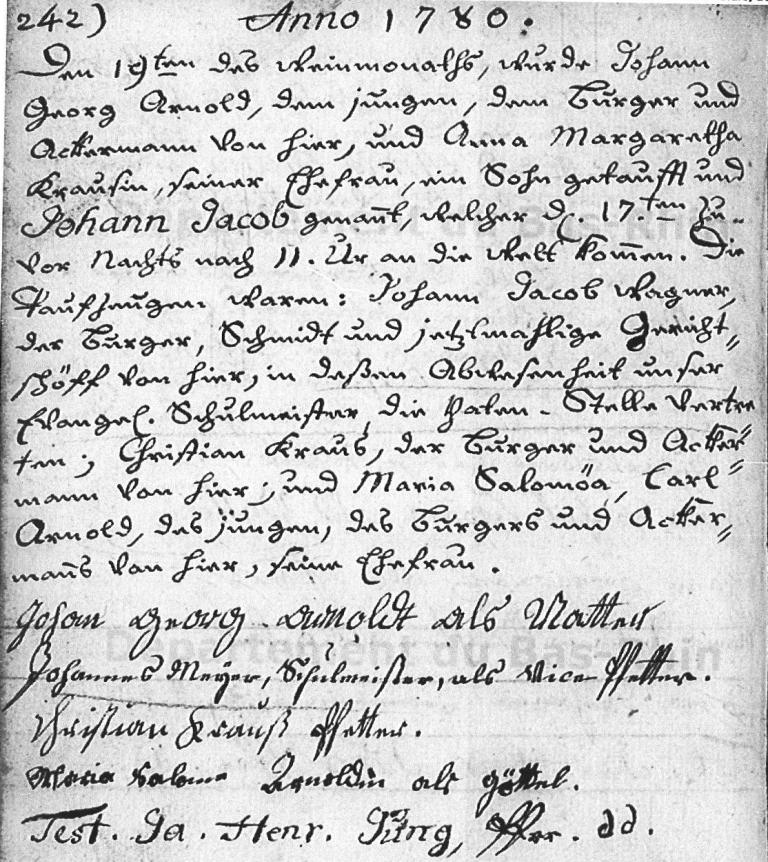 242) Anno 1780.
Den 19ten des Weinmonaths, wurde Johann
Georg Arnold, dem jungen, dem Burger und
Ackermann von hier, und Anna Margaretha
Krausin, seiner Ehefrau, ein Sohn getaufft und
Johann Jacob genañt, welcher d. 17.ten zu-
vor Nachts nach 11. Ur an die Welt kom̄en. Die
Taufzeugen waren: Johann Jacob Wagner,
der Burger, Schmidt und jetztmahlige Gericht„
schöff von hier, in deßen Abwesenheit unser
Evangel. Schulmeister die Paten-Stelle vertre
ten; Christian Kraus, der Burger und Acker„
mann von hier; und Maria Salomöa, Carl
Arnold, des jungen, des Burgers und Acker„
mañs von hier, seine Ehefrau.
Johan Georg Arnoldt als Vatter
Johannes Meyer, Schulmeister, als Vice Pfetter.
Christian Krauß Pfetter.
Maria Salome Arnoldin als Göttel.
Test. Ja. Henr. Jüng, Pfrr. dd.
Departement du Bas-Rhin
Departement du Bas-Rhin